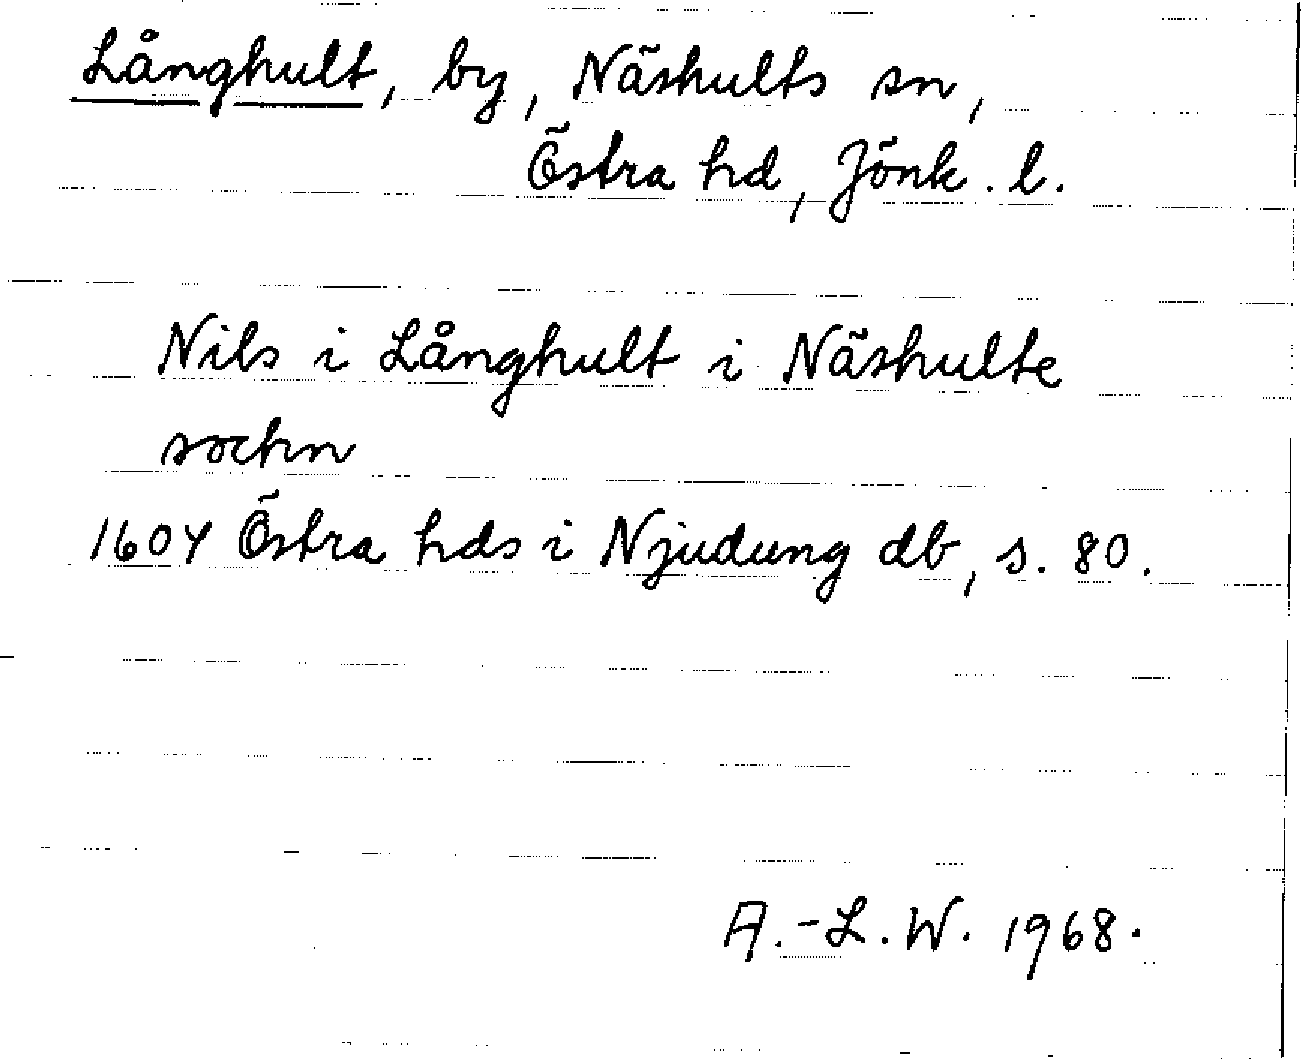 Långhult, by, Näshults sn,
Östra hd, Jönk. l.
Nils i Långhult i Näshulte
sochn
1604 Östra hds i Njudung db, s. 80.
A.-L. W. 1968.